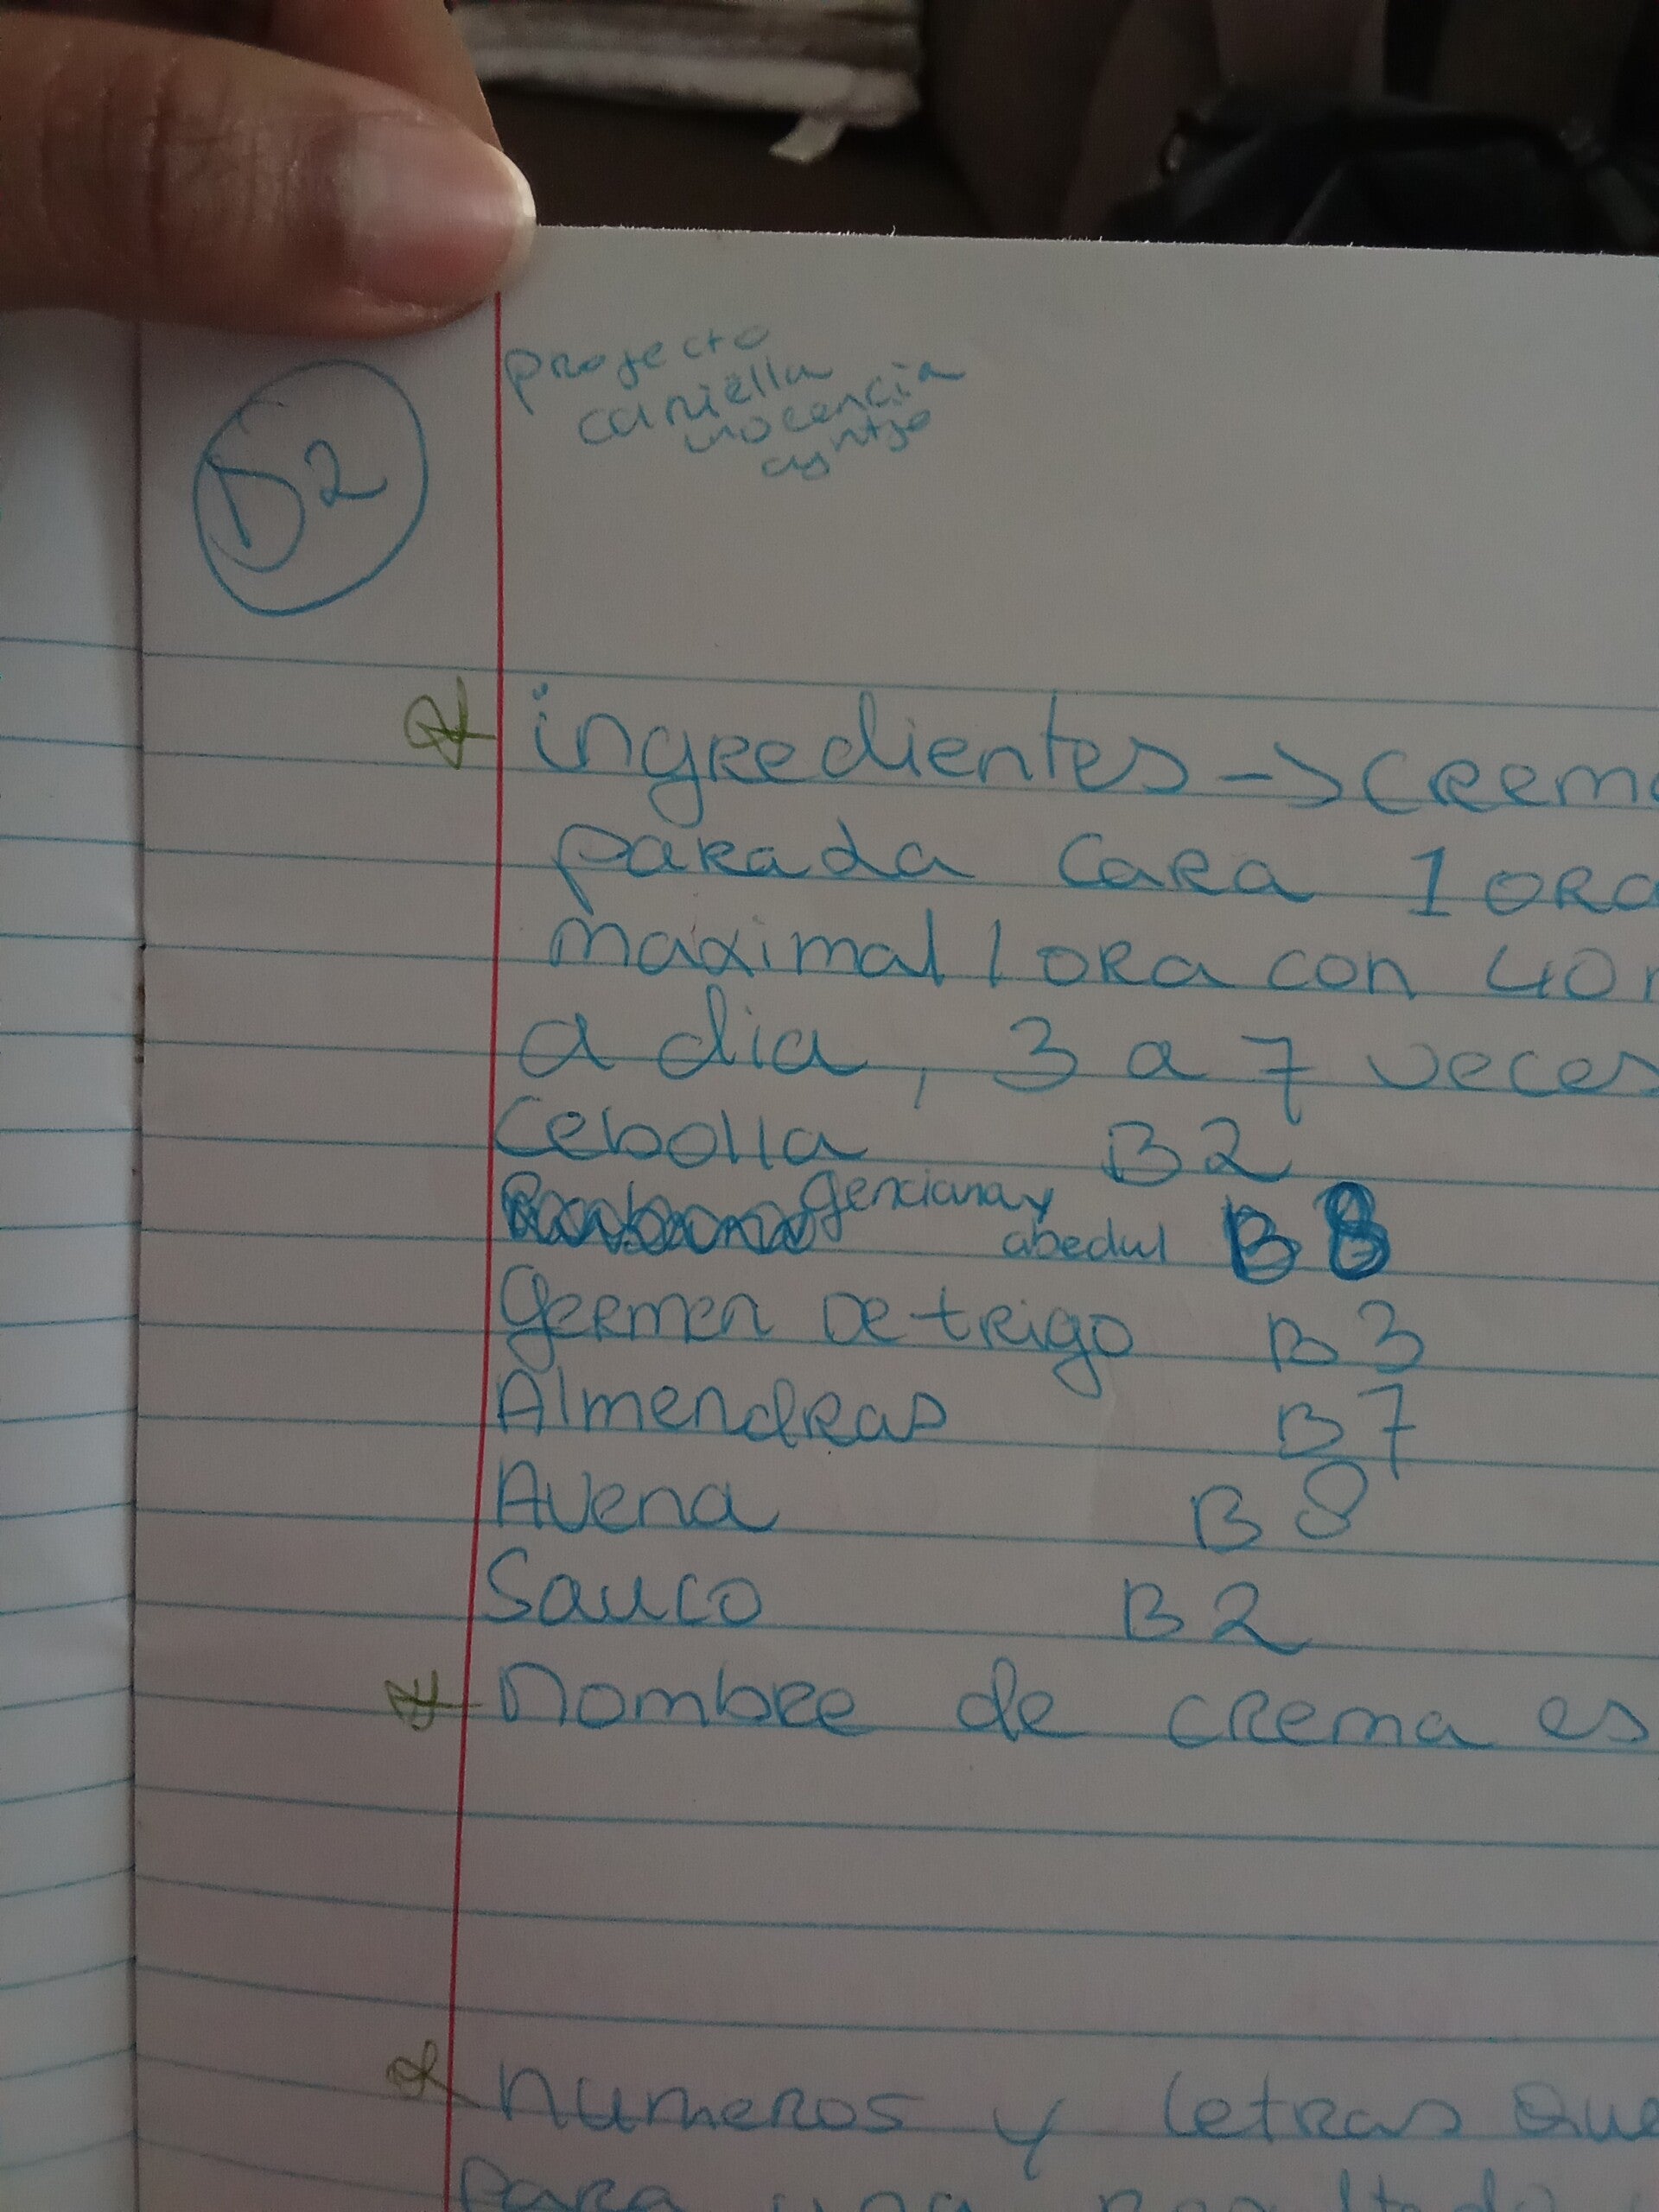 D2
proyecto
ingredientes -> crema
parada cara 1 ora
maximal 1 ora con 40
a dia, 3 a 7 veces
Cebolla B2
genciana y
abedul B8
Germen De trigo B3
Almendras B7
Avena B8
Sauco B2
nombre de crema es
numeros y letras que
para una